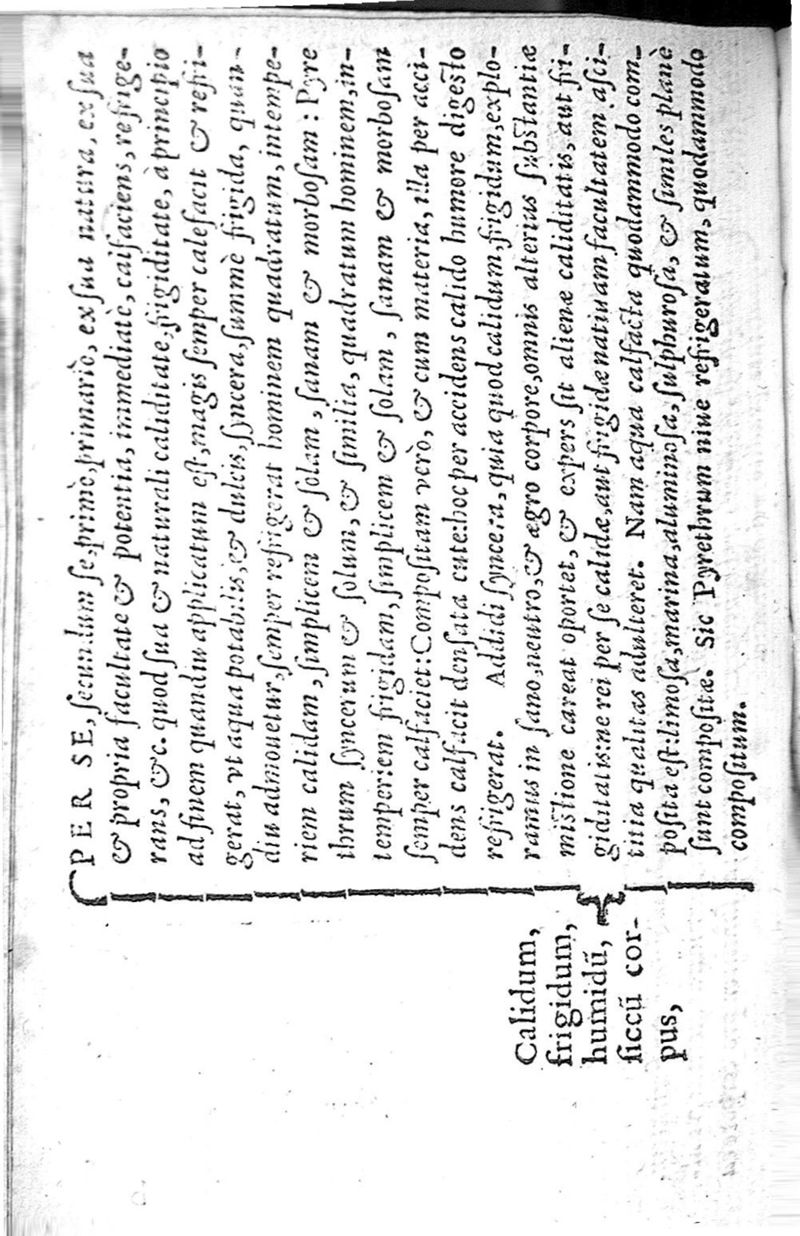 Calidum,
frigidum,
humidũ,
ſiccũ cor-
pus,
PER SE, ſecundum ſe, primò, primariò, ex ſua natura, ex ſua
& propria facultate & potentia, immediatè, calfaciens, refrige-
rans, &c. quod ſua & naturali caliditate, frigiditate, à principio
ad finem quandiu applicatum eſt, magis ſemper calefacit & refri-
gerat, vt aqua potabilis, & dulcis, ſyncera, ſummè frigida, quan-
diu admouetur, ſemper refrigerat hominem quadratum, intempe-
riem calidam, ſimplicem & ſolam, ſanam & morboſam: Pyre
thrum ſyncerum & ſolum, & ſimilia, quadratum hominem, in-
temperiem frigidam, ſimplicem & ſolam, ſanam & morboſam
ſemper calfaciet: Compoſitam verò, & cum materia, illa per acci-
dens calfacit denſata cute: hoc per accidens calido humore digeſto
refrigerat. Addidi ſyncera, quia quod calidum, frigidum, explo-
ramus in ſano, neutro, & ægro corpore, omnis alterius ſubſtantiæ
miſtione careat oportet, & expers ſit alienæ caliditatis, aut fri-
giditatis: ne rei per ſe calidæ, aut frigidæ natiuam facultatem aſci-
titia qualitas adulteret. Nam aqua calfacta quodammodo com-
poſita eſt: limoſa, marina, aluminoſa, ſulphuroſa, & ſimiles planè
ſunt compoſitæ. Sic Pyrethrum niue refrigeratum, quodammodo
compoſitum.